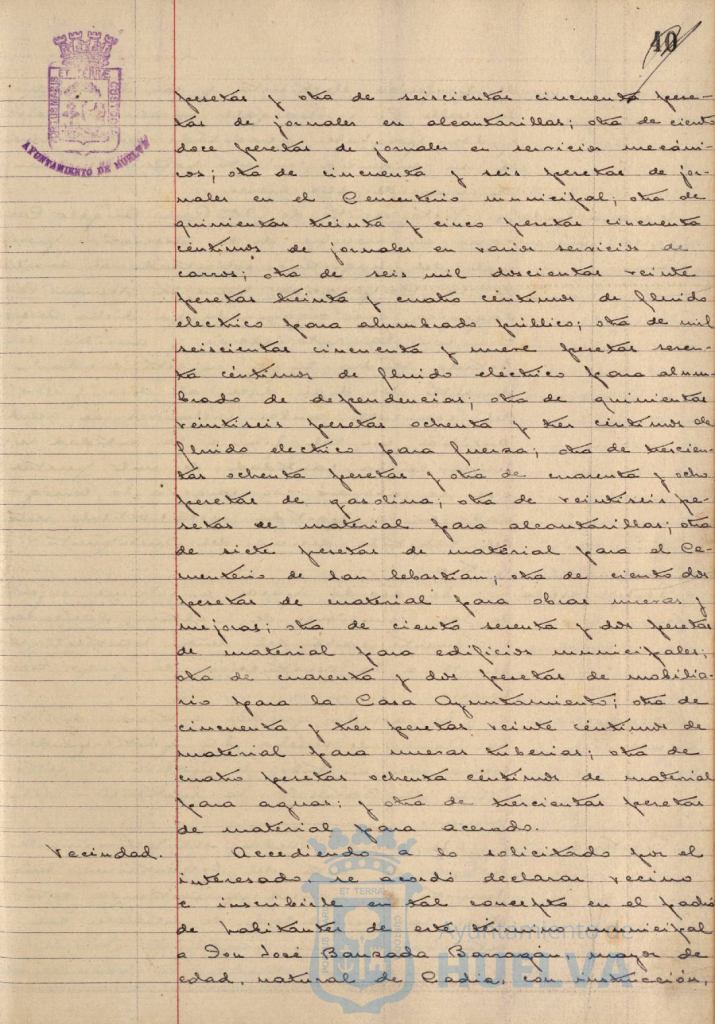 10
AYUNTAMIENTO DE HUELVA
pesetas y otra de seiscientas cincuenta pese-
tas de jornales en alcantarillas; otra de ciento
doce pesetas de jornales en servicios mecáni-
cos; otra de cincuenta y seis pesetas de jor-
nales en el Cementerio municipal; otra de
quinientas treinta y cinco pesetas cincuenta
céntimos de jornales en varios servicios de
carros; otra de seis mil doscientas veinte
pesetas treinta y cuatro céntimos de fluido
electrico para alumbrado público; otra de mil
seiscientas cincuenta y nueve pesetas seten-
ta céntimos de fluido eléctrico para alum-
brado de dependencias; otra de quinientas
veintiseis pesetas ochenta y tres céntimos de
fluido electrico para fuerza; otra de trescien-
tas ochenta pesetas y otra de cuarenta y ocho
pesetas de gasolina; otra de veintiseis pe-
setas de material para alcantarillas; otra
de siete pesetas de material para el Ce-
menterio de San Sebastian; otra de ciento dos
pesetas de material para obras nuevas y
mejoras; otra de ciento sesenta y dos pesetas
de material para edificios municipales;
otra de cuarenta y dos pesetas de mobilia-
rio para la Casa Ayuntamiento; otra de
cincuenta y tres pesetas veinte céntimos de
material para nuevas tuberias; otra de
cuatro pesetas ochenta céntimos de material
para aguas; y otra de trescientas pesetas
de material para acerado.
Vecindad. Accediendo a lo solicitado por el
interesado, se acordó declarar vecino
e inscribirle en tal concepto en el padrón
de habitantes de este término municipal
a Don José Banzada Barragán, mayor de
edad, natural de Cadiz, con instrucción,
Ayuntamiento de
HUELVA